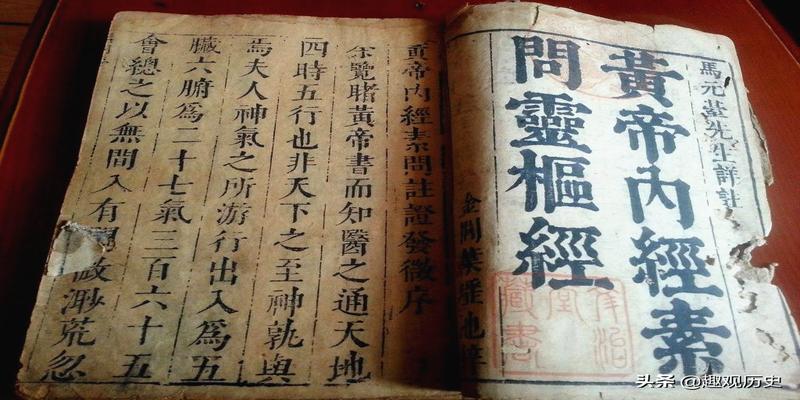 馬元臺先生詳註
黃帝內經素
問靈樞經
黃帝內經素問註證發微序
余覽睹黃帝書而知醫之通天地
四時五行也非天下之至神孰與
焉夫人神氣之所游行出入爲五
臟六腑爲二十七氣三百六十五
會總之以無間入有間微渺荒忽
藏書
头条 @趣观历史